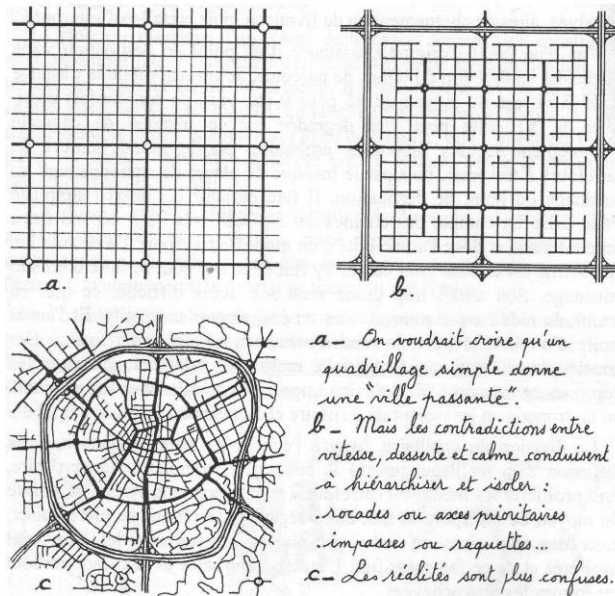 a.
b.
c
a - On voudrait croire qu'un
quadrillage simple donne
une "ville passante"
b - Mais les contradictions entre
vitesse, desserte et calme conduisent
à hiérarchiser et isoler
rocades ou axes prioritaires
impasses ou raquettes...
c - Les réalités sont plus confuses.